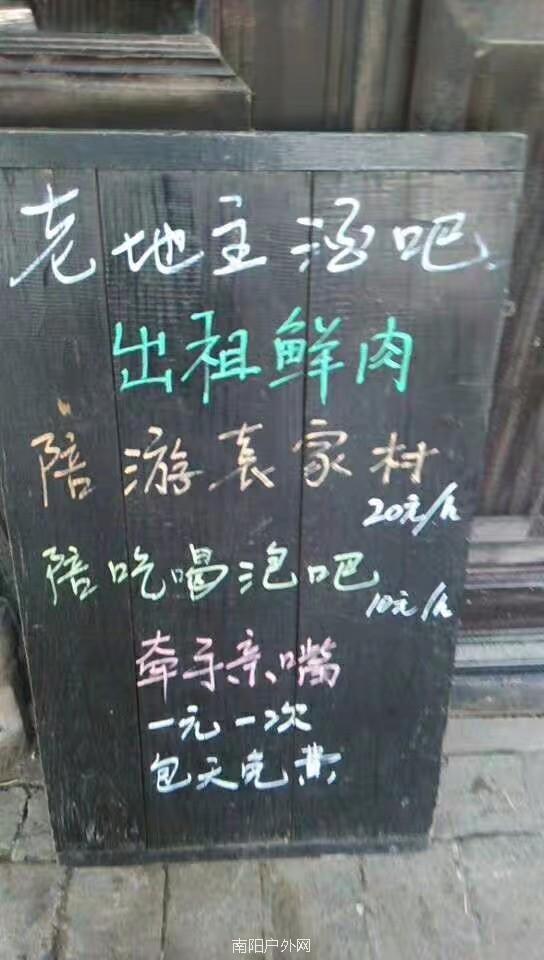 老地主酒吧
出租鲜肉
陪游袁家村
20元/h
陪吃喝泡吧
10元/h
牵手亲嘴
一元一次
包天免费
南阳户外网